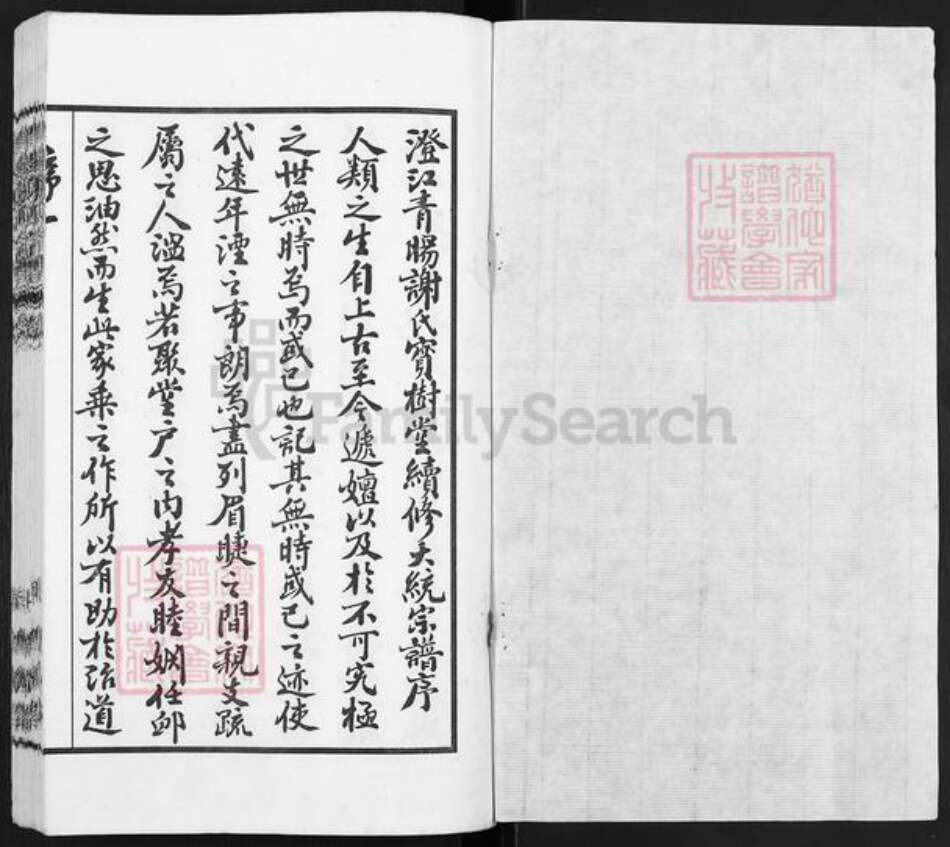 澄江青暘謝氏寶樹堂續修大統宗譜序
人類之生自上古至今遞嬗以及於不可究極
之世無時焉而或已也記其無時或已之迹使
代遠年湮之事朗焉盡列眉睫之間親支疏
屬之人藹焉若聚堂户之内孝友睦婣任卹
之思油然而生此家乘之作所以有助於治道
序一
譜學會
收藏
FamilySearch